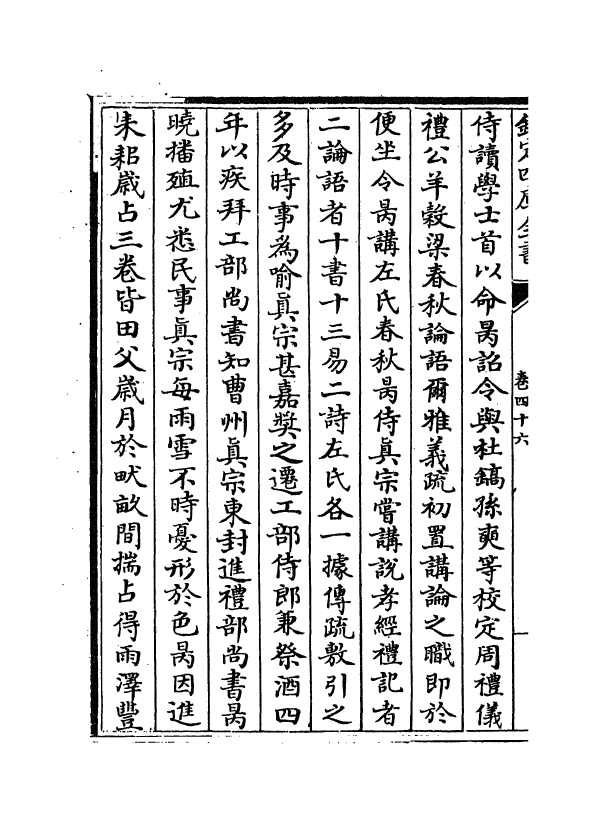 欽定四庫全書
卷四十六
侍讀學士首以命昺詔令與杜鎬孫奭等校定周禮儀
禮公羊穀梁春秋論語爾雅義疏初置講論之職即於
便坐令昺講左氏春秋昺侍真宗嘗講說孝經禮記者
二論語者十書十三易二詩左氏各一據傳疏敷引之
多及時事為喻真宗甚嘉獎之遷工部侍郎兼祭酒四
年以疾拜工部尚書知曹州真宗東封進禮部尚書昺
曉播殖尤悉民事真宗每雨雪不時憂形於色昺因進
耒耜歲占三卷皆田父歲月於畎畝間揣占得雨澤豐